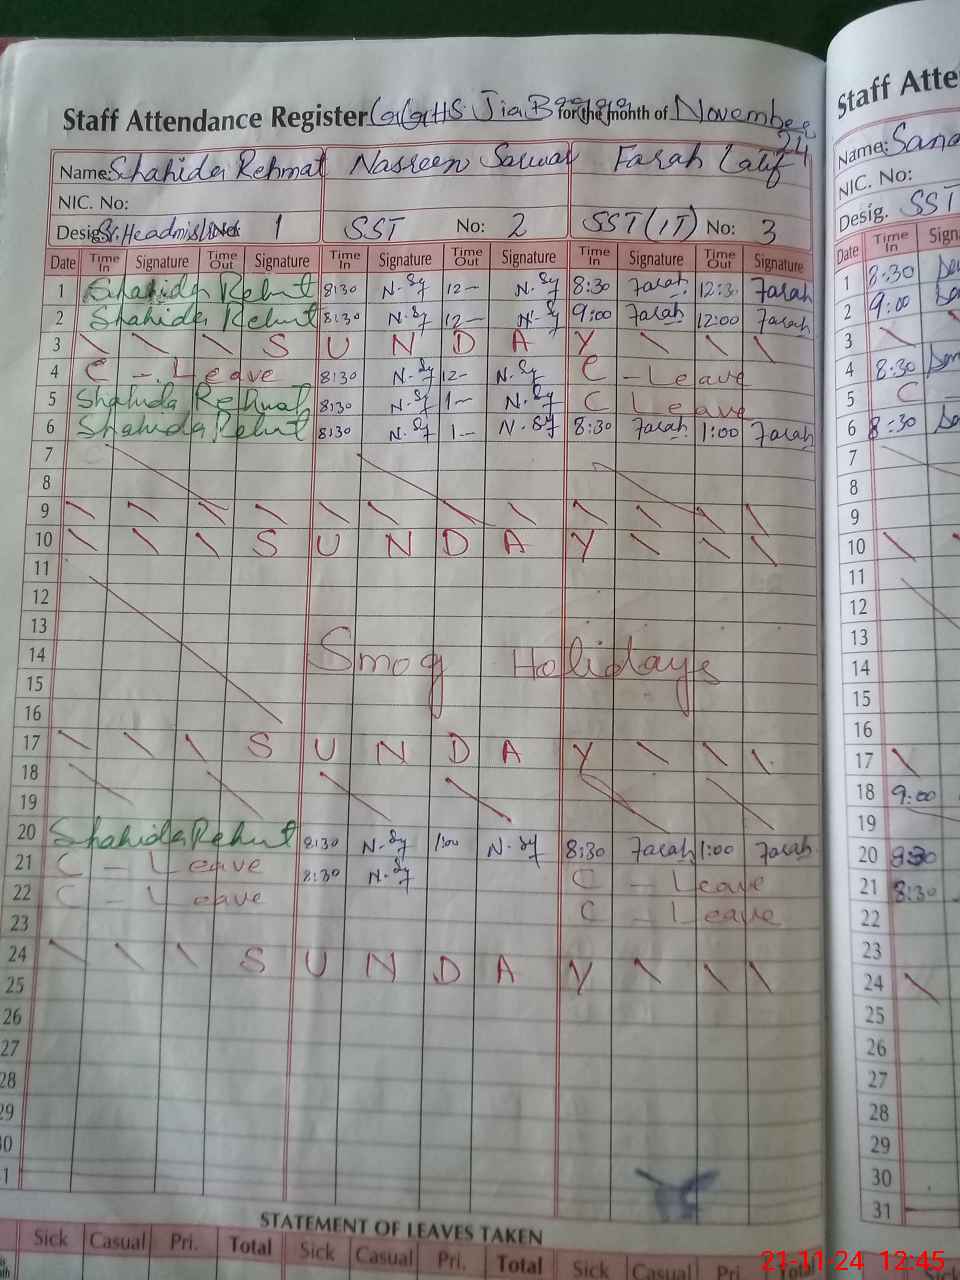 Staff Attendance Register GGHS Jia Bagga for the month of November
24
Name: Shahida Rehmat Nasreen Sarwar Farah Latif
NIC. No:
Desig. Sr. Headmistress No: 1 SST No: 2 SST (IT) No: 3
Date Time In Signature Time Out Signature Time In Signature Time Out Signature Time In Signature Time Out Signature
1 Shahida Rehmt 8:30 N. Sy 12- N. Sy 8:30 Farah 12:3. Farah
2 Shahida Rehmt 8:30 N. Sy 12- N. Sy 9:00 Farah 12:00 Farah
3 S U N D A Y
4 C - Leave 8:30 N. Sy 12- N. Sy C - Leave
5 Shahida Rehmat 8:30 N. Sy 1- N. Sy C Leave
6 Shahida Rehmt 8:30 N. Sy 1- N. Sy 8:30 Farah 1:00 Farah
7
8
9
10 S U N D A Y
11
12
13
14 Smog Holidays
15
16
17 S U N D A Y
18
19
20 Shahida Rehmt 8:30 N. Sy 1:00 N. Sy 8:30 Farah 1:00 Farah
21 C - Leave 8:30 N. Sy C - Leave
22 C - Leave C - Leave
23
24 S U N D A Y
25
26
27
28
29
30
31
STATEMENT OF LEAVES TAKEN
Sick Casual Pri. Total Sick Casual Pri. Total Sick Casual Pri. Total
Staff Atte
Name: Sana
NIC. No:
Desig. SST
Date Time In Signa
1 8:30
2 9:00
3
4 8:30
5 C
6 8:30
7
8
9
10
11
12
13
14
15
16
17
18 9:00
19
20 8:30
21 8:30
22
23
24
25
26
27
28
29
30
31
21-11-24 12:45